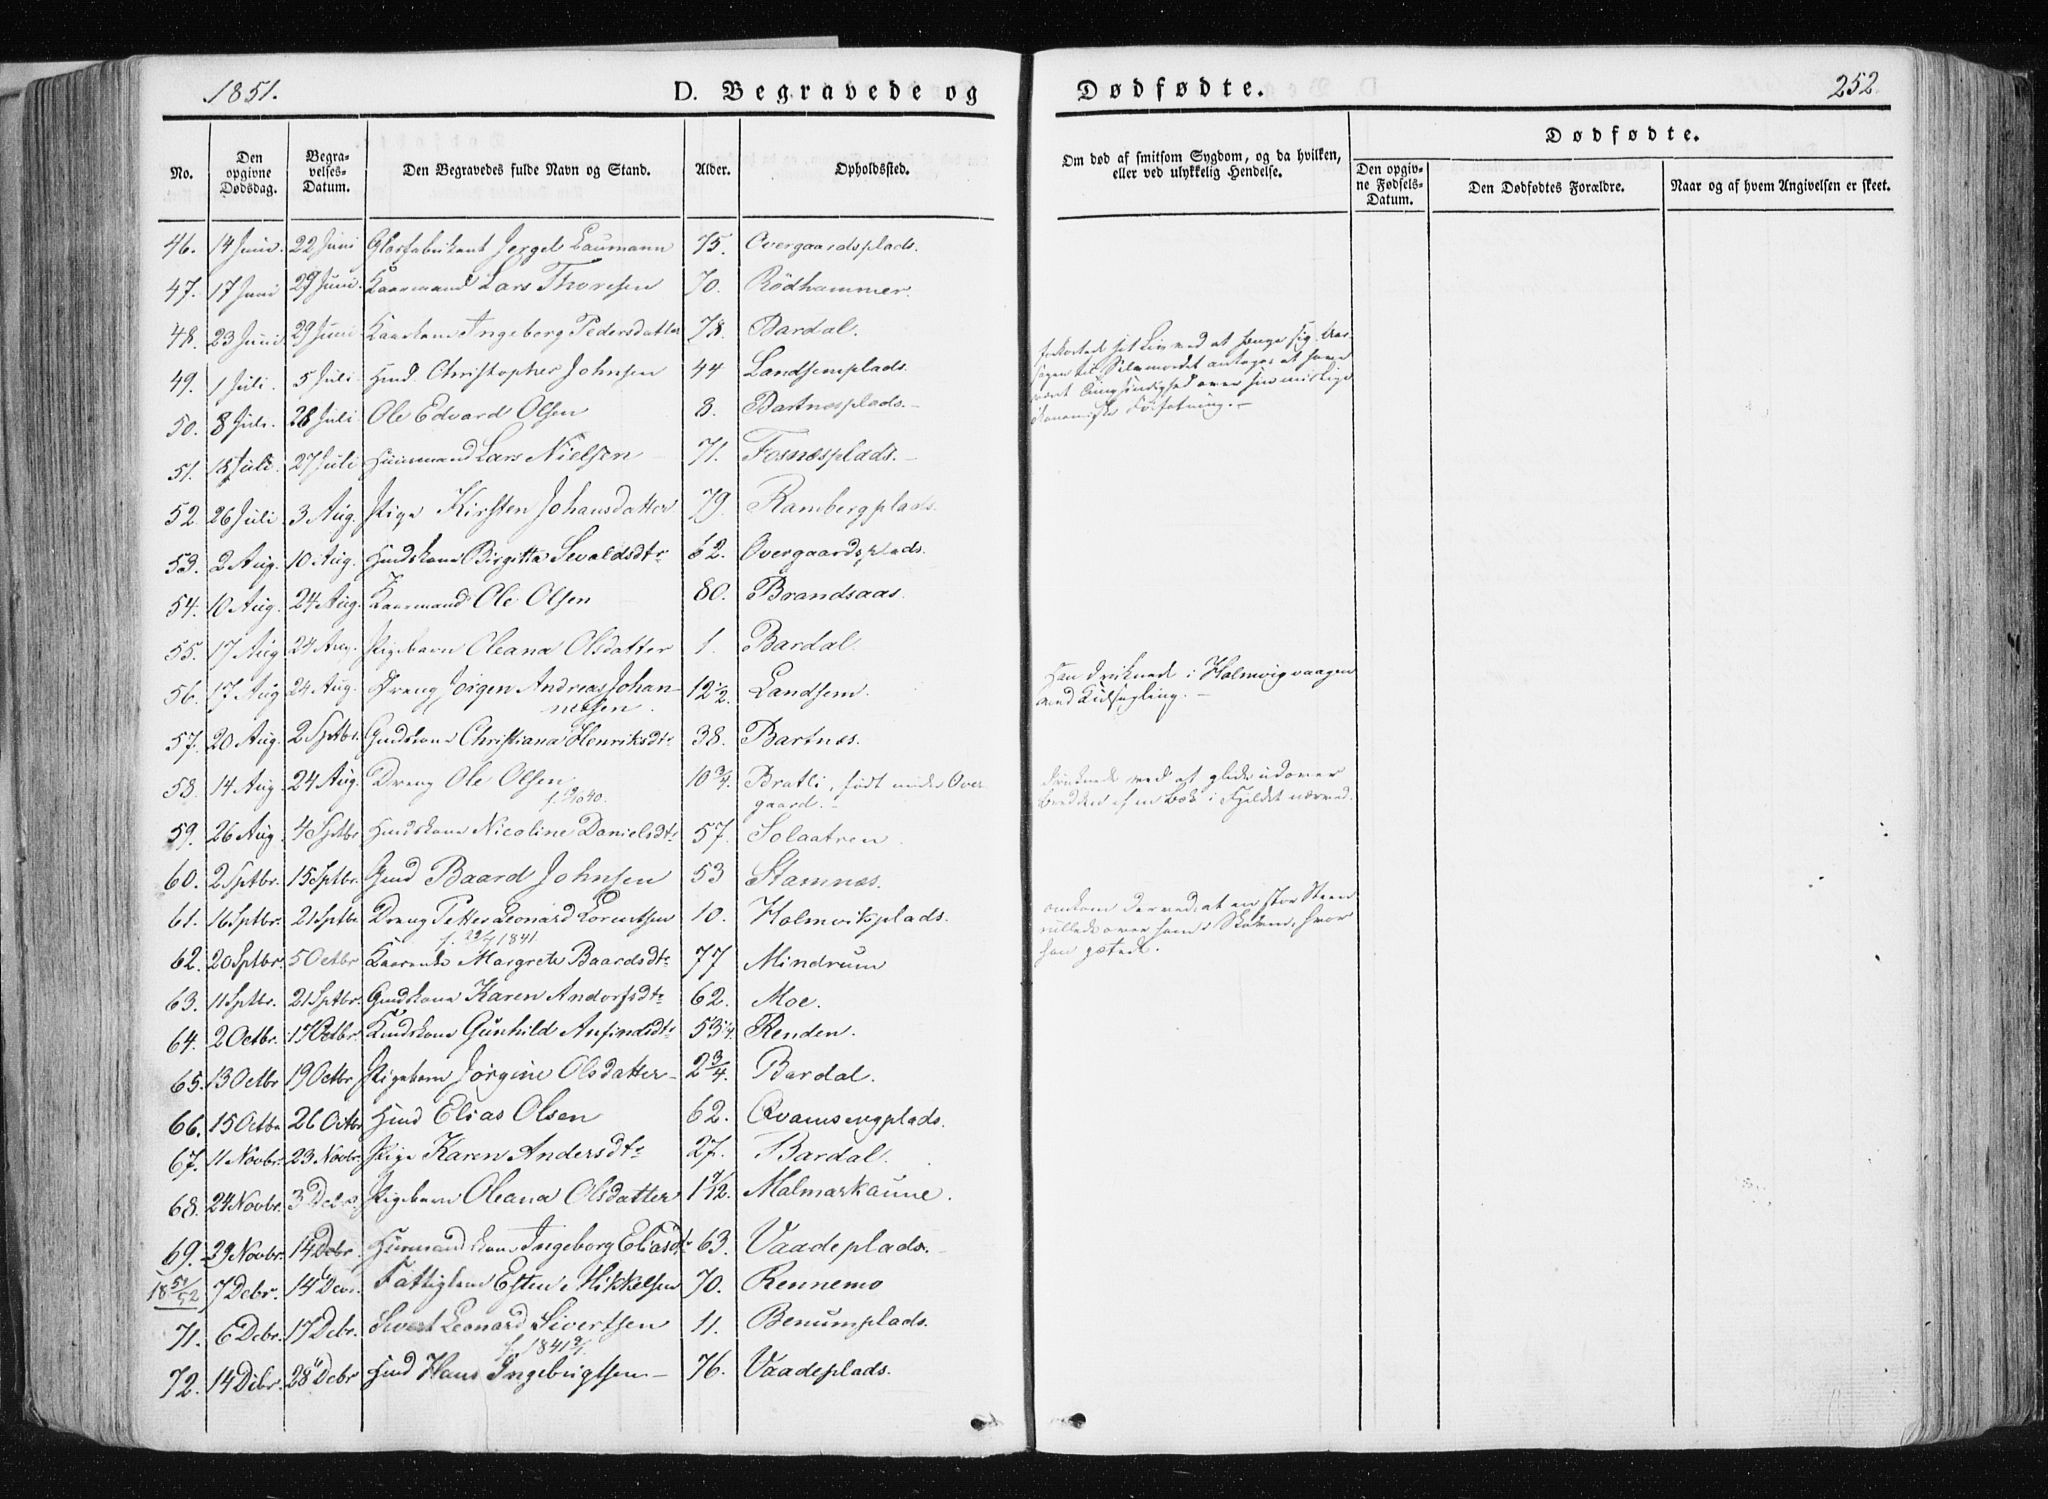 1851.
D. Begravede og
Dødfødte.
252.
No.
Den opgivne Dødsdag.
Begravelses-Datum.
Den Begravedes fulde Navn og Stand.
Alder.
Opholdssted.
Om død af smitsom Sygdom, og da hvilken,
eller ved ulykkelig Hendelse.
Dødfødte.
Den opgivne Fødsels-Datum.
Den Dødfødtes Forældre.
Naar og af hvem Angivelsen er skeet.
46. 14 Juni. 22 Juni Glasfabrikant Jergel Laumann 75. Overgaardsplads.
47. 17 Juni 29 Juni. Kaarmand Lars Thoresen 70. Rödhammer.
48. 23 Juni 29 Juni Kaarkone Ingeborg Pedersdatter 78. Bardal.
49. 1 Juli. 5 Juli Husmd Christopher Johnsen 44 Landsemplads.
forkortede sit Liv ved at hænge sig. Aar-
sagen til Selvmordet antages at have
været Sindssvaghed over sin mislige
økonomiske Forfatning.-
50. 8 Juli. 28 Juli Ole Edvard Olsen 8. Bartnesplads.-
51. 15 Juli. 27 Juli Huusmand Lars Nielsen 71. Fosnesplads.-
52. 26 Juli. 3 Aug. Pige Kirsten Johansdatter 79. Rambergplads.
53. 2 Aug. 10 Aug. Husmdskone Birgitta Sevaldsdtr 62. Overgaardsplads.
54. 10 Aug. 24 Aug. Kaarmand Ole Olsen 80. Brandsaas.
55. 17 Aug 24 Aug. Pigebarn Oleana Olsdatter 1. Bardal.
56. 17 Aug 24 Aug. Dreng Jörgen Andreas Johan-
nesen. 12 1/2. Landsem.
Han druknede i Holmvigvaagen
ved Kuldseiling.-
57. 20 Aug. 2 Sptbr. Gmdskone Christiana Henriksdtr 38. Bartnes.
58. 14 Aug 24 Aug. Dreng Ole Olsen 10 3/4. Bratli, født under Over
gaard.-
druknede ved at glide udover
Bredden af en Bæk i Fjeldet nærved.
59. 26 Aug. 4 Sptbr Husmdskone Nicoline Danielsdtr 57. Solaatren
60. 2 Sptbr. 15 Sptbr. Gmd Baard Johnsen 53 Stamnes.
61. 16 Sptbr. 21 Sptbr Dreng Petter Leonard Lorentsen 10. Holmvikplads.
f. 22/7 1841
omkom derved, at en stor Steen
rullede over ham i Skoven, hvor
han gjætede.
62. 20 Sptbr. 5 Octbr Kaarenke Margrete Baardsdtr 77 Mindrum
63. 11 Sptbr. 21 Sptbr. Gmdskone Karen Andorsdtr 62. Moe.
64. 2 Octbr. 17 Octbr. Husmdskone Gunhild Anfindsdtr 53 1/4. Renden.
65. 13 Octbr 19 Octbr Pigebarn Jörgine Olsdatter- 2 3/4. Bardal.
66. 15 Octbr 26 Octbr Husmd Elias Olsen 62. Qvamsengplads.
67. 11 Novbr. 23 Novbr. Pige Karen Andersdtr 27. Bardal.
68. 24 Novbr. 3 Debr. Pigebarn Oleana Olsdatter 1 1/12. Malmarkaune.
69. 29 Novbr. 14 Debr. Husmandskone Ingeborg Eliasdtr 63. Vaadeplads.
18 51/52 7 Debr. 14 Debr. Fattiglem Esten Mikkelsen 70. Rennemo
71. 6 Debr. 17 Debr. Sivert Leonard Sivertsen 11. Benumplads.
72. 14 Debr. 28 Debr Husmd Hans Ingebrigtsen- 76. Vaadeplads.